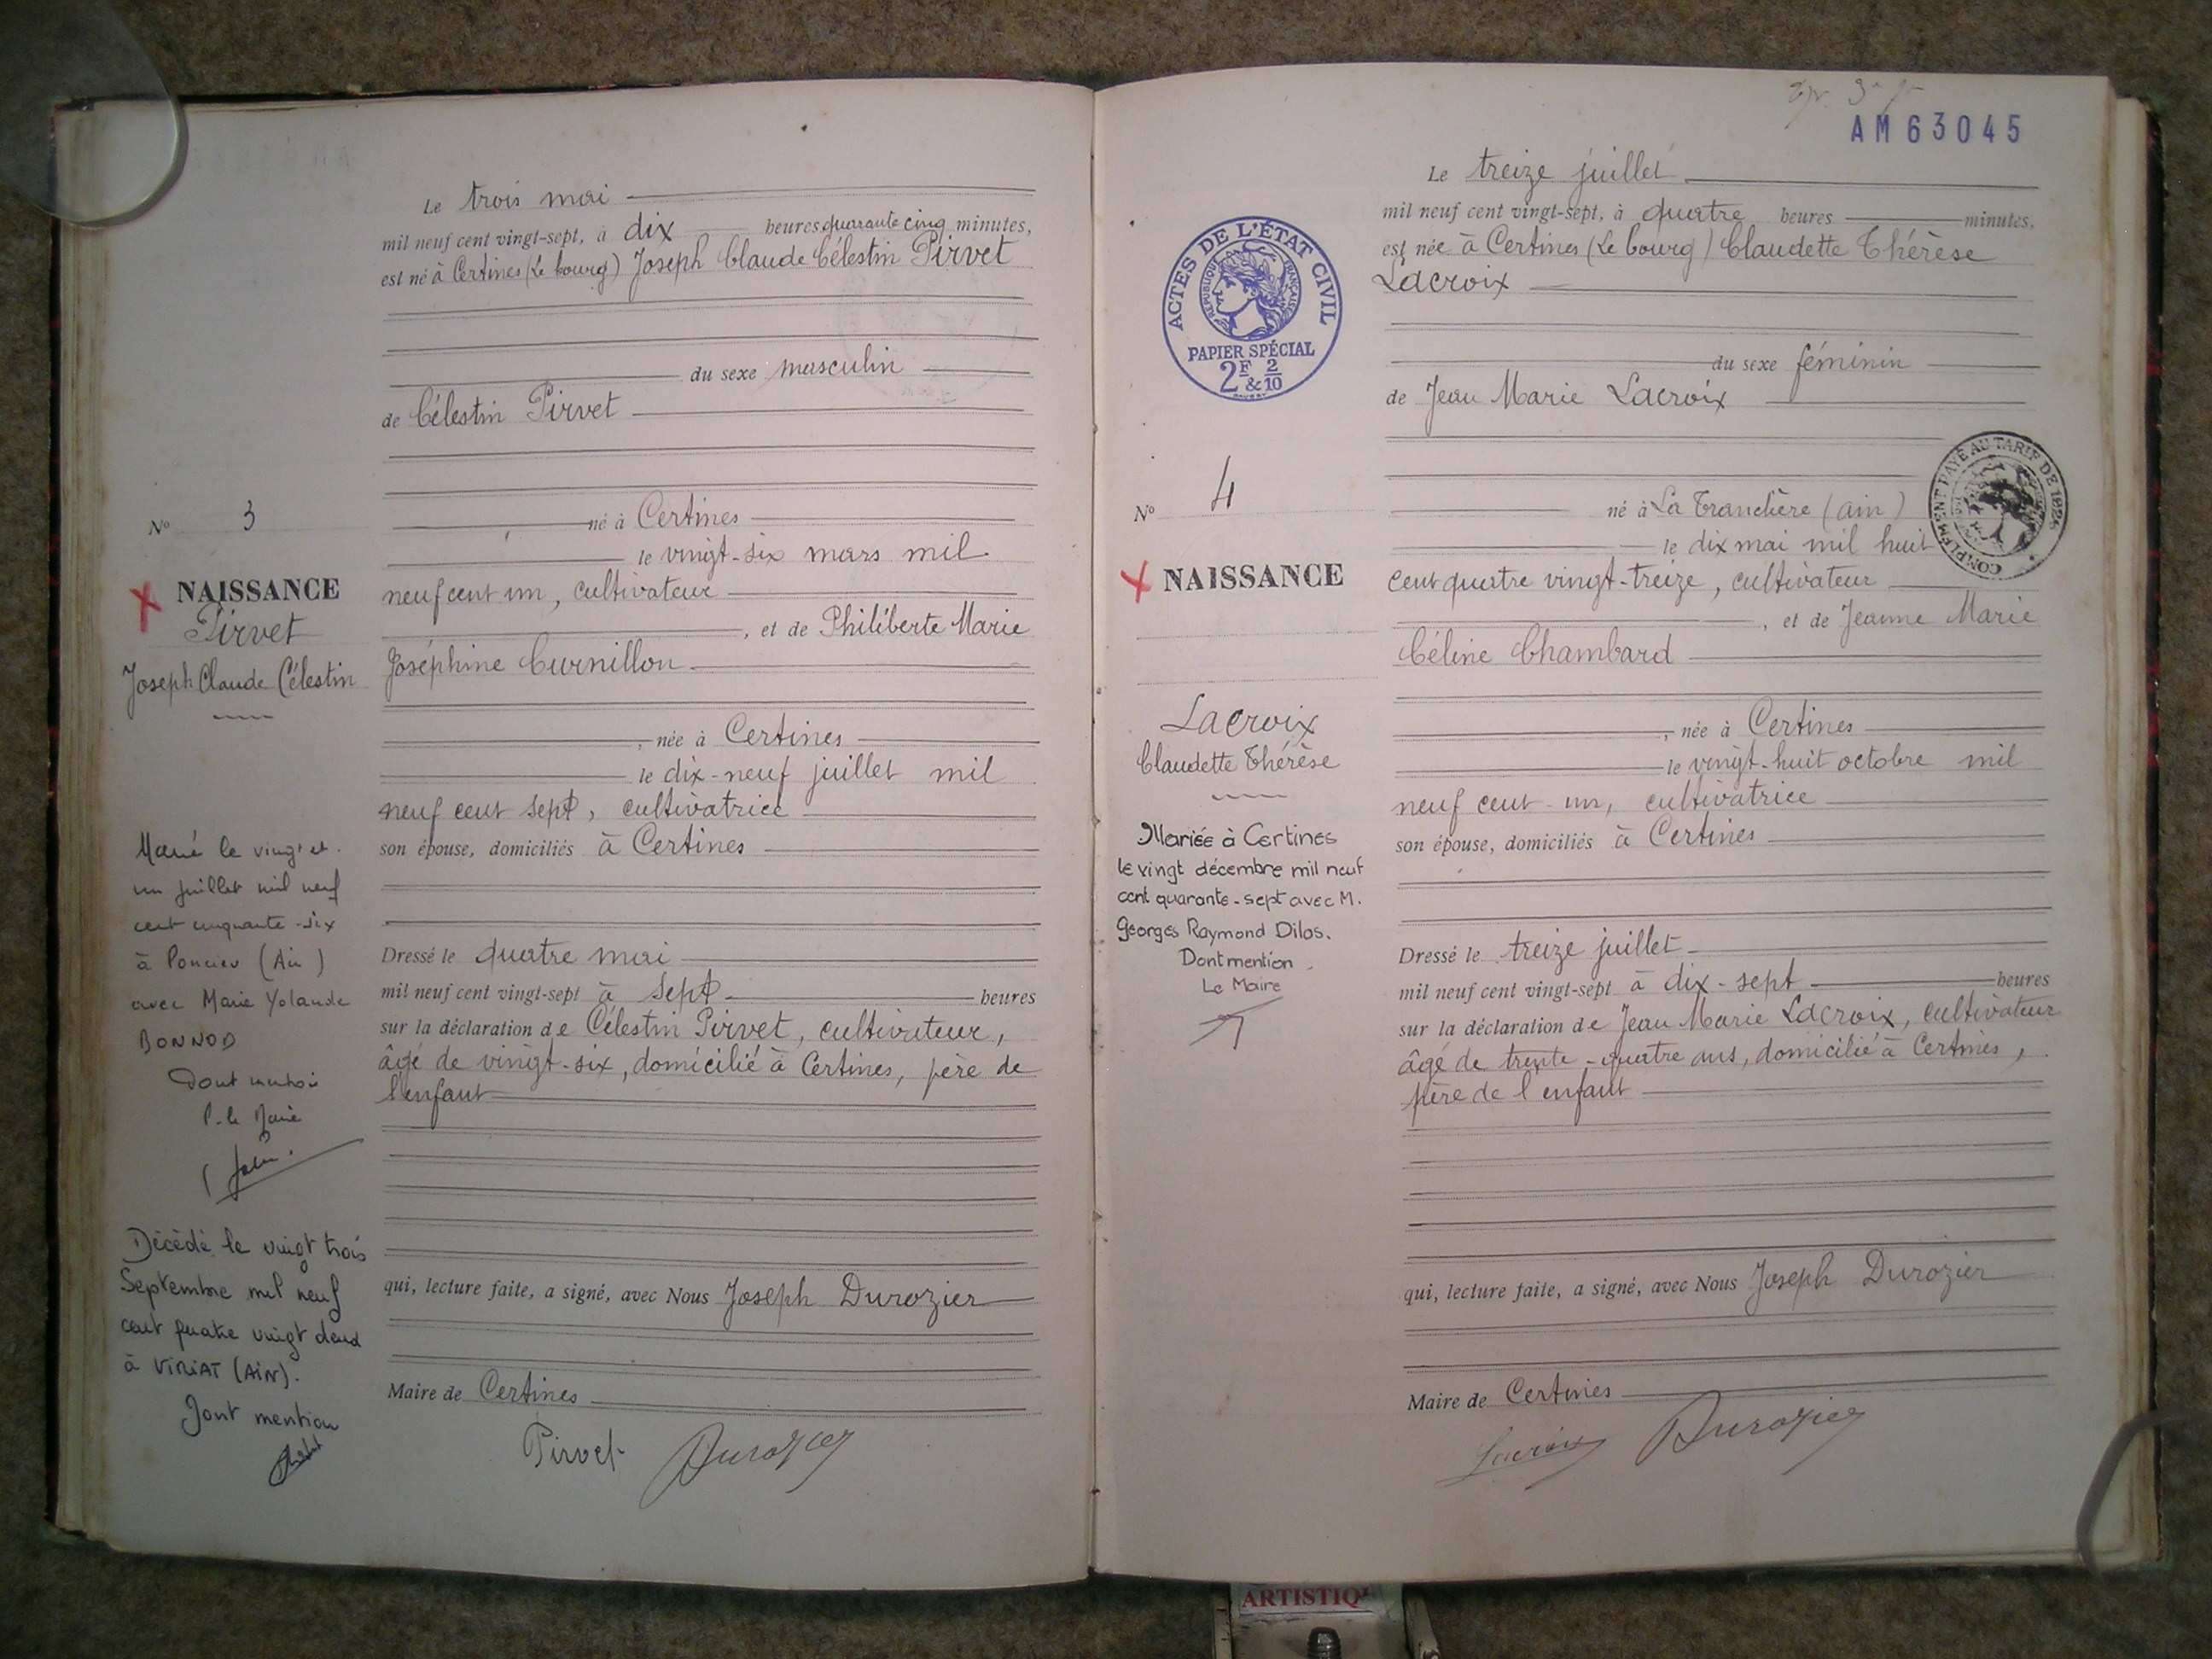 Le trois mai
mil neuf cent vingt-sept, à dix heures quarante cinq minutes,
est né à Certines (Le bourg) Joseph Claude Célestin Pirvet
du sexe masculin
de Célestin Pirvet
né à Certines
le vingt-six mars mil
neuf cent un, cultivateur
, et de Philiberte Marie
Joséphine Curnillon
, née à Certines
le dix-neuf juillet mil
neuf cent sept, cultivatrice
son épouse, domiciliés à Certines
Dressé le quatre mai
mil neuf cent vingt-sept à sept heures
sur la déclaration de Célestin Pirvet, cultivateur,
âgé de vingt-six, domicilié à Certines, père de
l'enfant
qui, lecture faite, a signé, avec Nous Joseph Durozier
Maire de Certines
Pirvet Durozier
N° 3
NAISSANCE
Pirvet
Joseph Claude Célestin
Marié le vingt et
un juillet mil neuf
cent cinquante-six
à Poncieu (Ain)
avec Marie Yolande
BONNOD
Dont mention
P. le Maire
Décédé le vingt trois
Septembre mil neuf
cent quatre vingt deux
à VIRIAT (AIN).
Dont mention
AM63045
Le treize juillet
mil neuf cent vingt-sept, à quatre heures minutes,
est née à Certines (Le bourg) Claudette Thérèse
Lacroix
du sexe féminin
de Jean Marie Lacroix
né à La Tranclière (ain)
le dix mai mil huit
cent quatre vingt-treize, cultivateur
, et de Jeanne Marie
Céline Chambard
, née à Certines
le vingt-huit octobre mil
neuf cent un, cultivatrice
son épouse, domiciliés à Certines
Dressé le treize juillet
mil neuf cent vingt-sept à dix-sept heures
sur la déclaration de Jean Marie Lacroix, cultivateur
âgé de trente-quatre ans, domicilié à Certines,
père de l'enfant
qui, lecture faite, a signé, avec Nous Joseph Durozier
Maire de Certines
Lacroix Durozier
ACTES DE L'ÉTAT CIVIL
RÉPUBLIQUE FRANÇAISE
PAPIER SPÉCIAL
2F & 2/10
COMPLÉMENT PAYÉ AU TARIF DE 1926
N° 4
NAISSANCE
Lacroix
Claudette Thérèse
Mariée à Certines
le vingt décembre mil neuf
cent quarante-sept avec M.
Georges Raymond Dilas.
Dont mention
Le Maire
ARTISTIQ